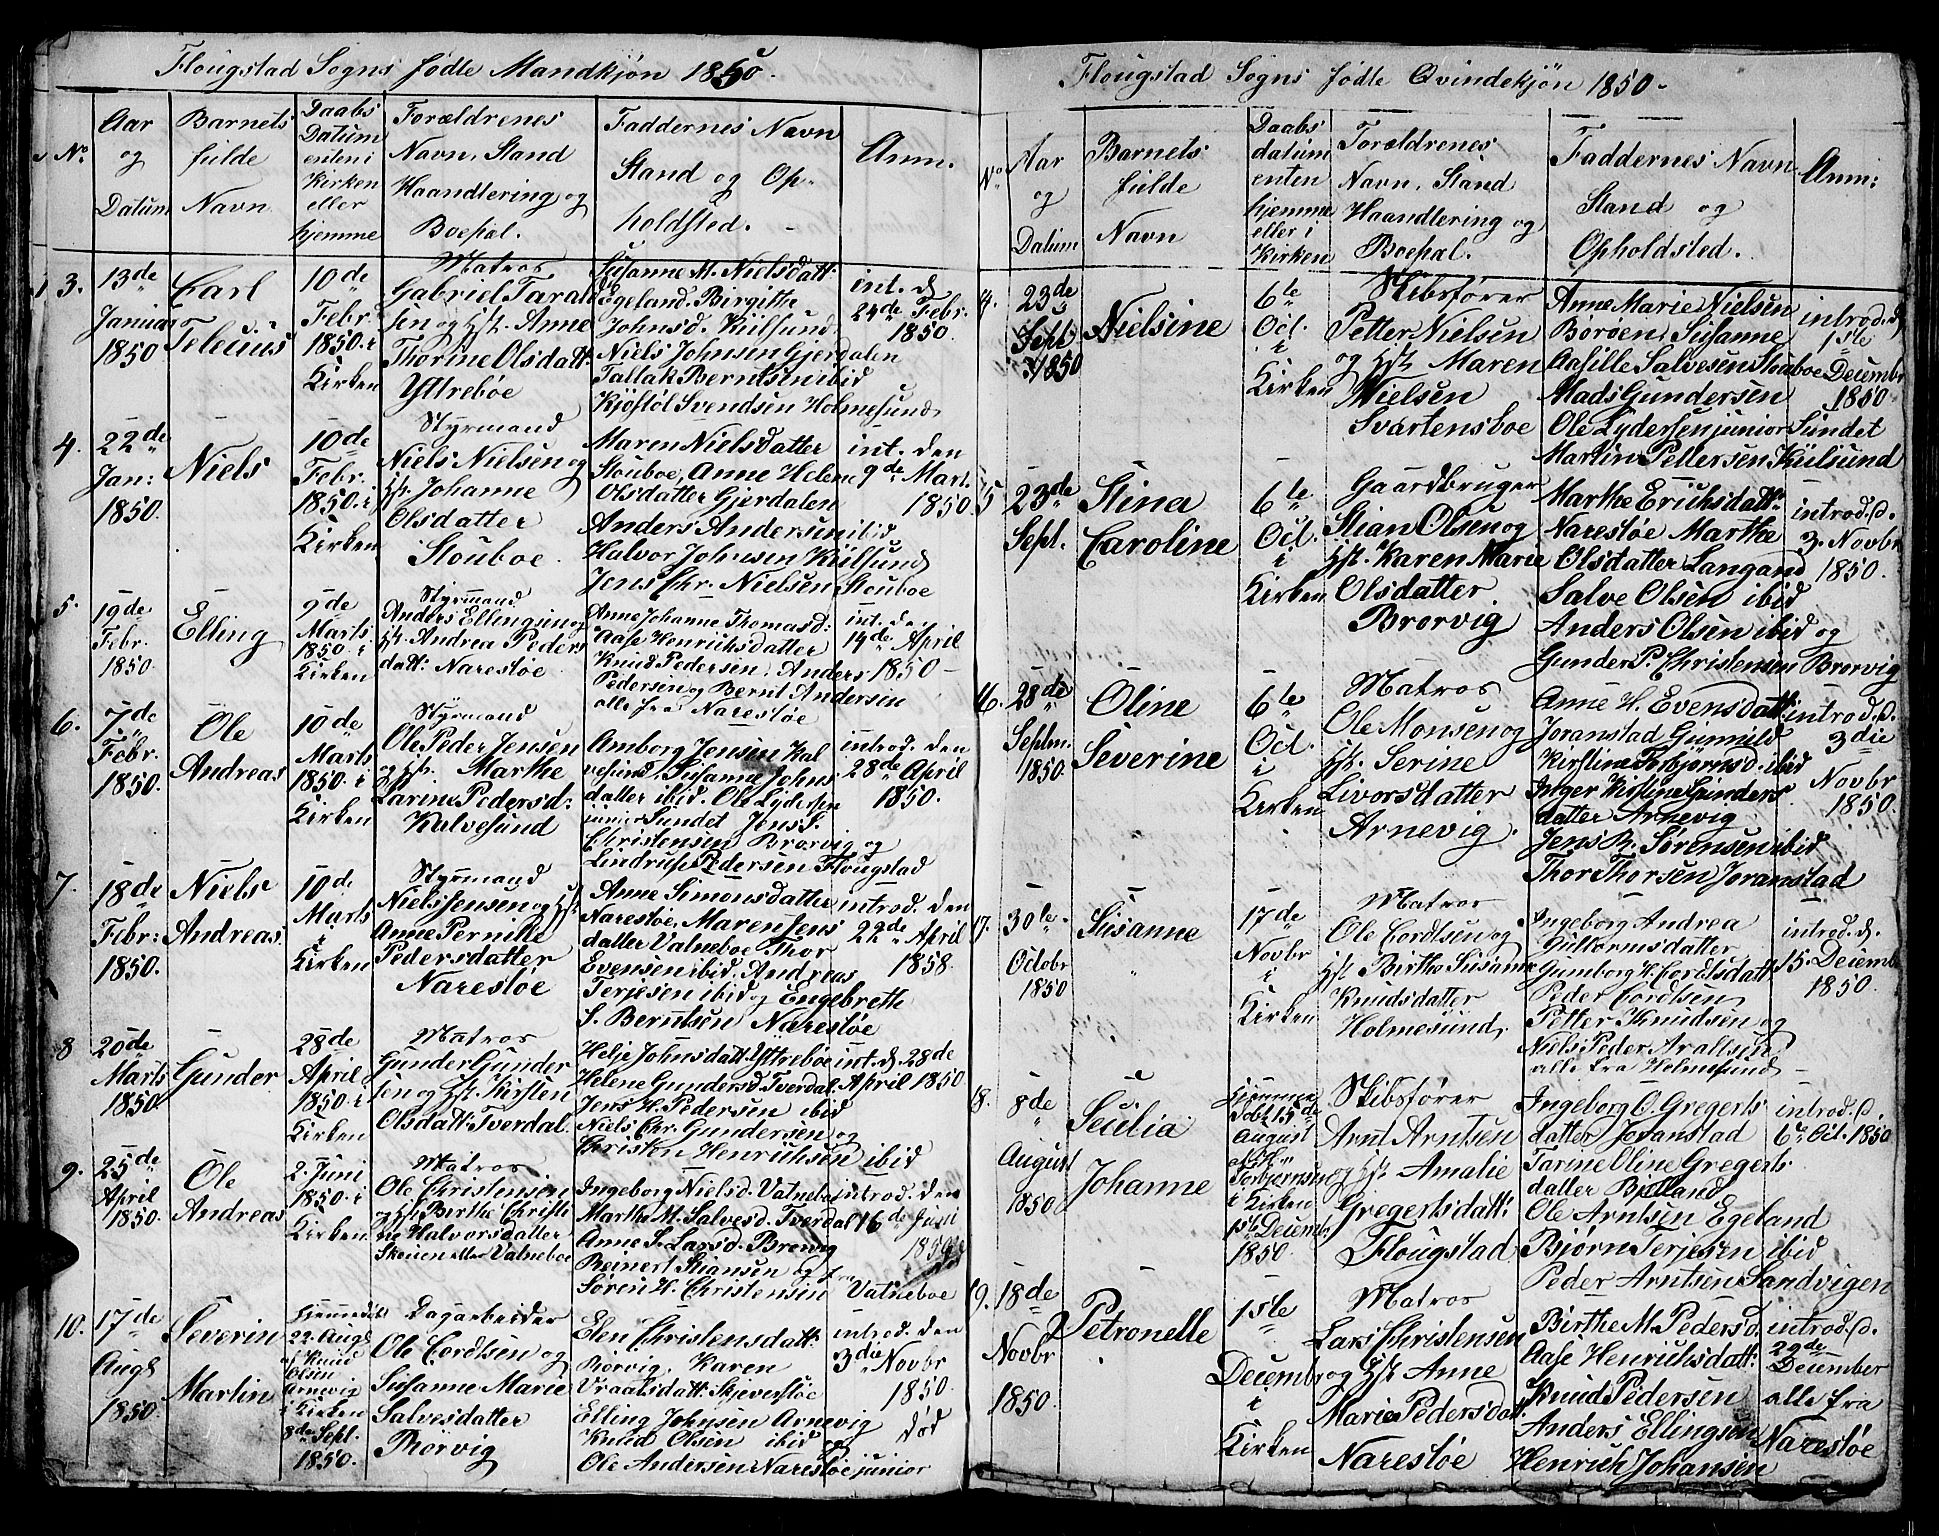 Flougstad Sogns fødte Mandkjøn 1850.
No.
Aar
og
Datum
Barnets
fulde
Navn
Daabs
Datum
enten i
Kirken
eller
hjemme
Forældrenes
Navn, Stand
Haandtering og
Boepæl.
Faddernes Navn
Stand og Op-
holdsted.
Anm.
3.
13de
Januar
1850
Carl
10de
Febr.
1850. i
Kirken
Matros
Gabriel Taral
sen og Hst. Anne
Thorine Olsdatt:
Yttreböe
Susanne M. Nielsdatt:
Egeland. Birgithe
Johnsd. Kiilsund
Niels Johnsen Gjerdalen
Tallak Berntsen ibid
Kjøstøl Svendsen Holmesund
int. d.
24de Febr.
1850.
4.
22de
Jan:
1850.
Niels
10de
Febr.
1850. i
Kirken
Styrmand
Niels Nielsen og
Hst. Johanne
Olsdatter
Stouboe.
Maren Nielsdatter
Stouboe, Anne Helene
Olsdatter Gjerdalen
Anders Andersen ibid
Halvor Johnsen Kiilsund
Jens Chr. Nielsen Stouboe
int. den
9de Mart.
1850
5.
19de
Febr.
1850.
Elling
9de
Marts
1850. i
Kirken
Styrmand
Anders Ellingsen og
Hst. Andrea Peders
datt: Narestöe
Anne Johanne Thomasd:
Aase Henriksdatter
Knud Pedersen, Anders
Pedersen og Bernt Andersen
alle fra Narestöe
int. den
14de April
1850 -
6.
7de
Febr.
1850.
Ole
Andreas
10de
Marts
1850. i
Kirken
Styrmand
Ole Peder Jensen
og Hst. Marthe
Larine Pedersd:
Kalvesund
Amborg Jensen Kal
vesund, Susanne Johns
datter ibid. Ole Lydersen
junior Sundet Jens S.
Christensen Brorvig og
Pedersen Flougstad
introd. den
28de April
1850.
7.
18de
Febr:
1850.
Niels
Andreas.
10de
Marts
i
Kirken
Styrmand
Niels Jensen og Hst.
Anne Pernille
Pedersdatter
Narestöe
Anne Simonsdatter
Narestöe, Maren Jens
datter Valneboe Thor
Evensen ibid. Andreas
Terjesen ibid og Engebreth
S. Berntsen Narestöe
introd. den
22de April
1858.
8
20de
Marts
1850.
Gunder
28de
April
1850. i
Kirken
Matros
Gunder Gunder
sen og Hst. Kirsten
Olsdatt: Tverdal.
Helje Johnsdatt: Yttreböe
Helene Gundersd. Tverdal
Jens H. Pedersen ibid
Niels Chr. Gundersen og
Christen Henriksen ibid
int. d. 28de
April 1850
9.
25de
April
1850.
Ole
Andreas
2. Juni
1850. i
Kirken
Matros
Ole Christensen
og Hst. Birthe Christi
ne Halvorsdatter
Skouen eller Valneboe
Ingeborg Nielsd. Valneboe
Marthe M. Salvesd. Tverdal
Anne S. Larsd. Brorvig
Reinert Stiansen og
Sören H. Christensen fra Valneboe
introd. den
16de Juni
1850
10.
17de
Aug.
1850.
Severin
Martin
Hjemmedøbt
22. Aug.
af Knud
Olsen
Arnevig
i Kirken
8de Sept.
1850.
Dagarbeider
Ole Cordtsen og
Susanne Marie
Salvesdatter
Brörvig
Elen Christensdatt:
Börvig, Karen
Vraalsdatt: Skjeverstöe
Elling Johnsen Arnevig
Knud Olsen ibid
Ole Andersen Narestöe junior
introd. den
3die Novbr
1850.
Død
Flougstad Sogns fødte Qvindekjön 1850.-
No.
Aar
og
Datum
Barnets
fulde
Navn
Daabs
datum
enten
hjemme
eller i
Kirken
Forældrenes
Navn, Stand
Haandtering og
Boepæl.
Faddernes Navn
Stand og
Opholdsted.
Anm:
14.
23de
Sept
1850
Nielsine
6te
Oct.
i
Kirken
Skibsfører
Petter Nielsen
og Hst. Maren
Nielsen
Svartensboe
Anne Marie Nielsen
Boröen, Susanne
Aasille Salvesen Stouboe
Mads Gundersen
Ole Lydersen junior Sundet
Martin Pettersen Kiilsund
introd. d.
1ste
Decembr
1850.
15
23de
Sept.
Stina
Caroline
6te
Oct.
i
Kirken
Gaardbruger
Stian Olsen og
Hst. Karen Marie
Olsdatter
Brorvig
Marthe Eriksdatt:
Narestöe Marthe
Olsdatter Langand
Salve Olsen ibid
Anders Olsen ibid og
Gunder P. Christensen Brorvig
introd. d.
3. Novbr
1850.
16.
28de
Septm.
1850.
Oline
Severine
6te
Oct.
i
Kirken
Matros
Ole Monsen og
Hst. Serine
Livorsdatter
Arnevig.
Anne H. Evensdatt:
Joranstad Gunnild
Kirstine Torbjörnsd. ibid
Inger Kirstine Gunders
datter Arnevig
Jens B. Sörensen ibid
Thor Thorsen Joranstad
introd. d.
3die
Novbr
1850.
17.
30te
Octobr
1850
Susanne
17de
Novbr
i
Kirken
Matros
Ole Cordtsen og
Hst. Birthe Susanne
Knudsdatter
Holmesund,
Ingeborg Andrea
Guttormsdatter
Gumborg H. Cordtsdatt:
Peder Cordtsen
Petter Knudsen og
Niels Peder Araltsen
alle fra Holmesund -
introd. d.
15. Decemb
1850.
18.
8de
August
1850
Secilia
Johanne
Hjemme
døbt 15de
August
af H.
Torbjörnsen
i Kirken
1ste Decembr
1850.
Skibsfører
Arnt Arntsen
og Hst. Amalie
Gregertsdatt:
Flougstad
Ingeborg O. Gregerts
datter Joranstad
Tarine Oline Gregerts
datter Bjelland
Ole Arntsen Egeland
Björn Terjesen ibid
Peder Arntsen Sandvigen
introd. d.
6te Oct. 1850
19.
18de
Novbr
1850.
Petronelle
1ste
Decembr
i
Kirken
Matros
Lars Christensen
og Hst. Anne
Marie Pedersdatt:
Narestöe
Birthe M. Pedersd.
Aase Henriksdatt:
Knud Pedersen
Anders Ellingsen
Henrich Johansen
introd. d.
29de
December
alle fra
Narestöe